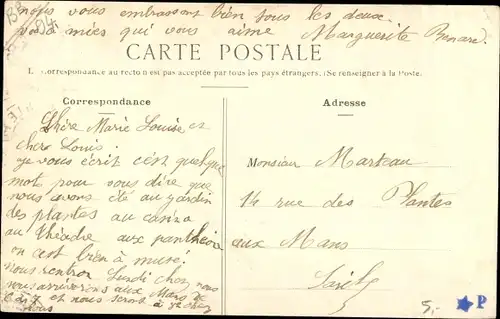 nous vous embrassons bien tous les deux
vos amies qui vous aime Marguerite Benard.
CARTE POSTALE
La Correspondance au recto n'est pas acceptée par tous les pays étrangers. (Se renseigner à la Poste)
Correspondance
Chère Marie Louise et
cher Louis.
je vous écrit c'est quelque
mot pour vous dire que
nous avons été au jardin
des plantes au
au théâdre aux panthéon
on est bien à musé.
nous rentron Lundi chez nous
nous arriverons aux Mans
et nous seront à
vous
Adresse
Monsieur Marteau
14 rue des Plantes
aux Mans
Sarthe
5,-
P